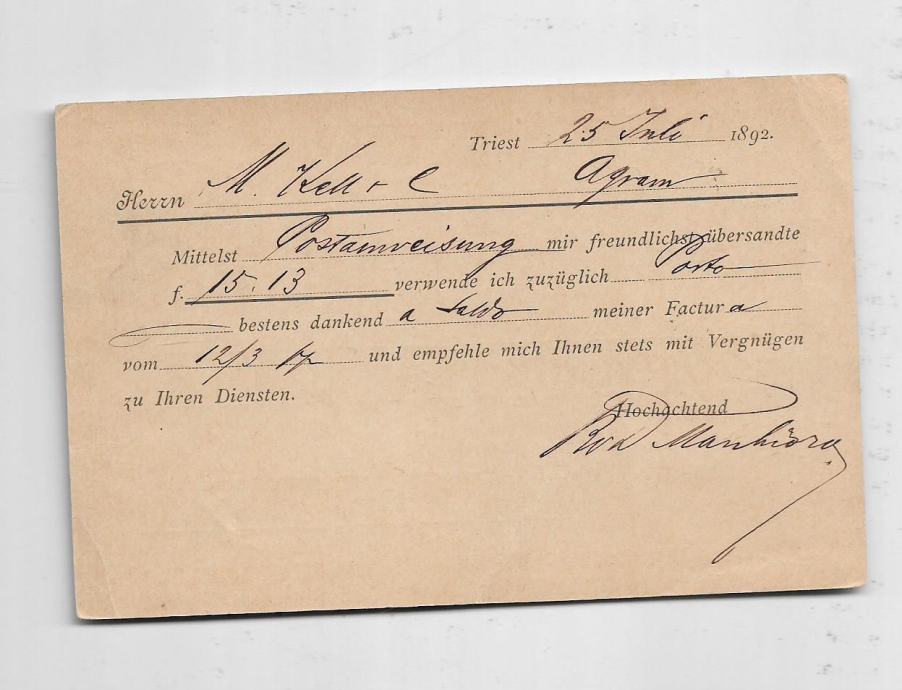 Triest 25 Juli 1892.
Herrn M. Kell & C Agram
Mittelst Postanweisung mir freundlichst übersandte
f. 15.13 verwende ich zuzüglich Porto
bestens dankend a Saldo meiner Factura
vom 12/3
und empfehle mich Ihnen stets mit Vergnügen
zu Ihren Diensten.
Hochachtend
Rod